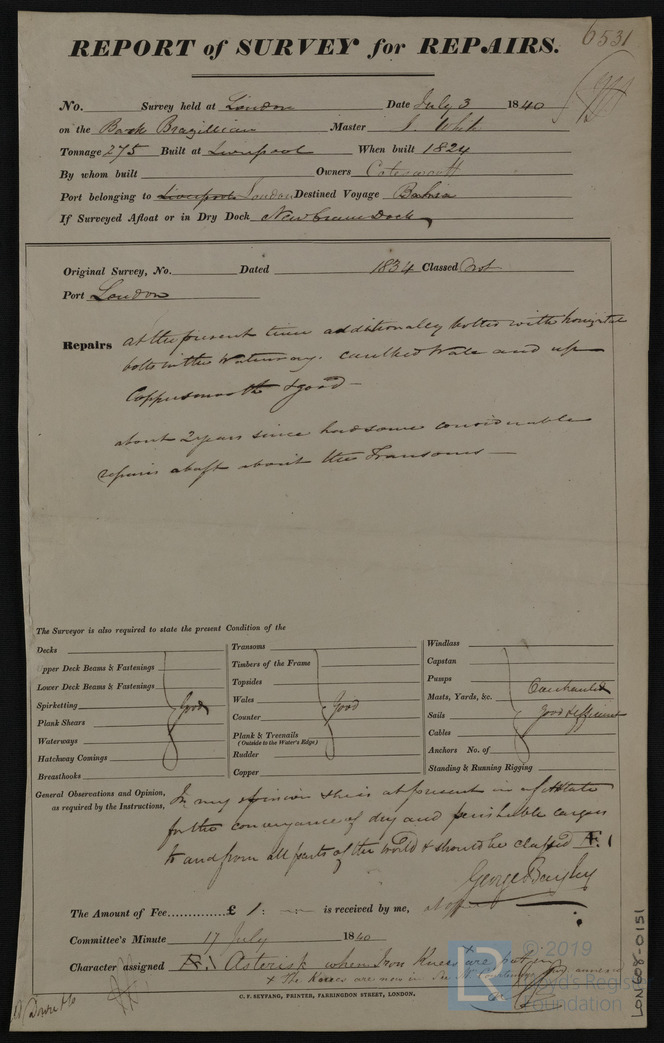 6531
REPORT of SURVEY for REPAIRS.
No. Survey held at London Date July 3 1840
on the Bark Brazillian Master J. Wht
Tonnage 275 Built at Liverpool When built 1824
By whom built Owners
Port belonging to Liverpool London Destined Voyage Bahia
If Surveyed Afloat or in Dry Dock New Crane Dock
Original Survey, No. Dated 1834 Classed not
Port London
Repairs at the present time additionally bolted with horizontal
bolts in the Waterway. caulked Wale and up
Coppersmooth & good
about 2 years since had some considerable
repairs abaft about the Transoms
The Surveyor is also required to state the present Condition of the
Decks
Upper Deck Beams & Fastenings
Lower Deck Beams & Fastenings
Spirketting Good
Plank Shears
Waterways
Hatchway Comings
Breasthooks
Transoms
Timbers of the Frame
Topsides
Wales Good
Counter
Plank & Treenails
(Outside to the Water's Edge)
Rudder
Copper
Windlass
Capstan
Pumps
Masts, Yards, &c. Overhauled
Sails good & efficient
Cables
Anchors No. of
Standing & Running Rigging
General Observations and Opinion, In my opinion she is at present in a fit state
as required by the Instructions, for the conveyance of dry and perishable cargoes
to and from all parts of the World & should be classed Æ 1
George Bayley
The Amount of Fee.............£ 1 : is received by me, at office
Committee's Minute 17 July 1840
Character assigned Æ 1 Asterisk when Iron Knees are
+ The Knees are now in
C. F. SEYFANG, PRINTER, FARRINGDON STREET, LONDON.
LR
© 2019
Lloyd's Register
Foundation
LON608-0151